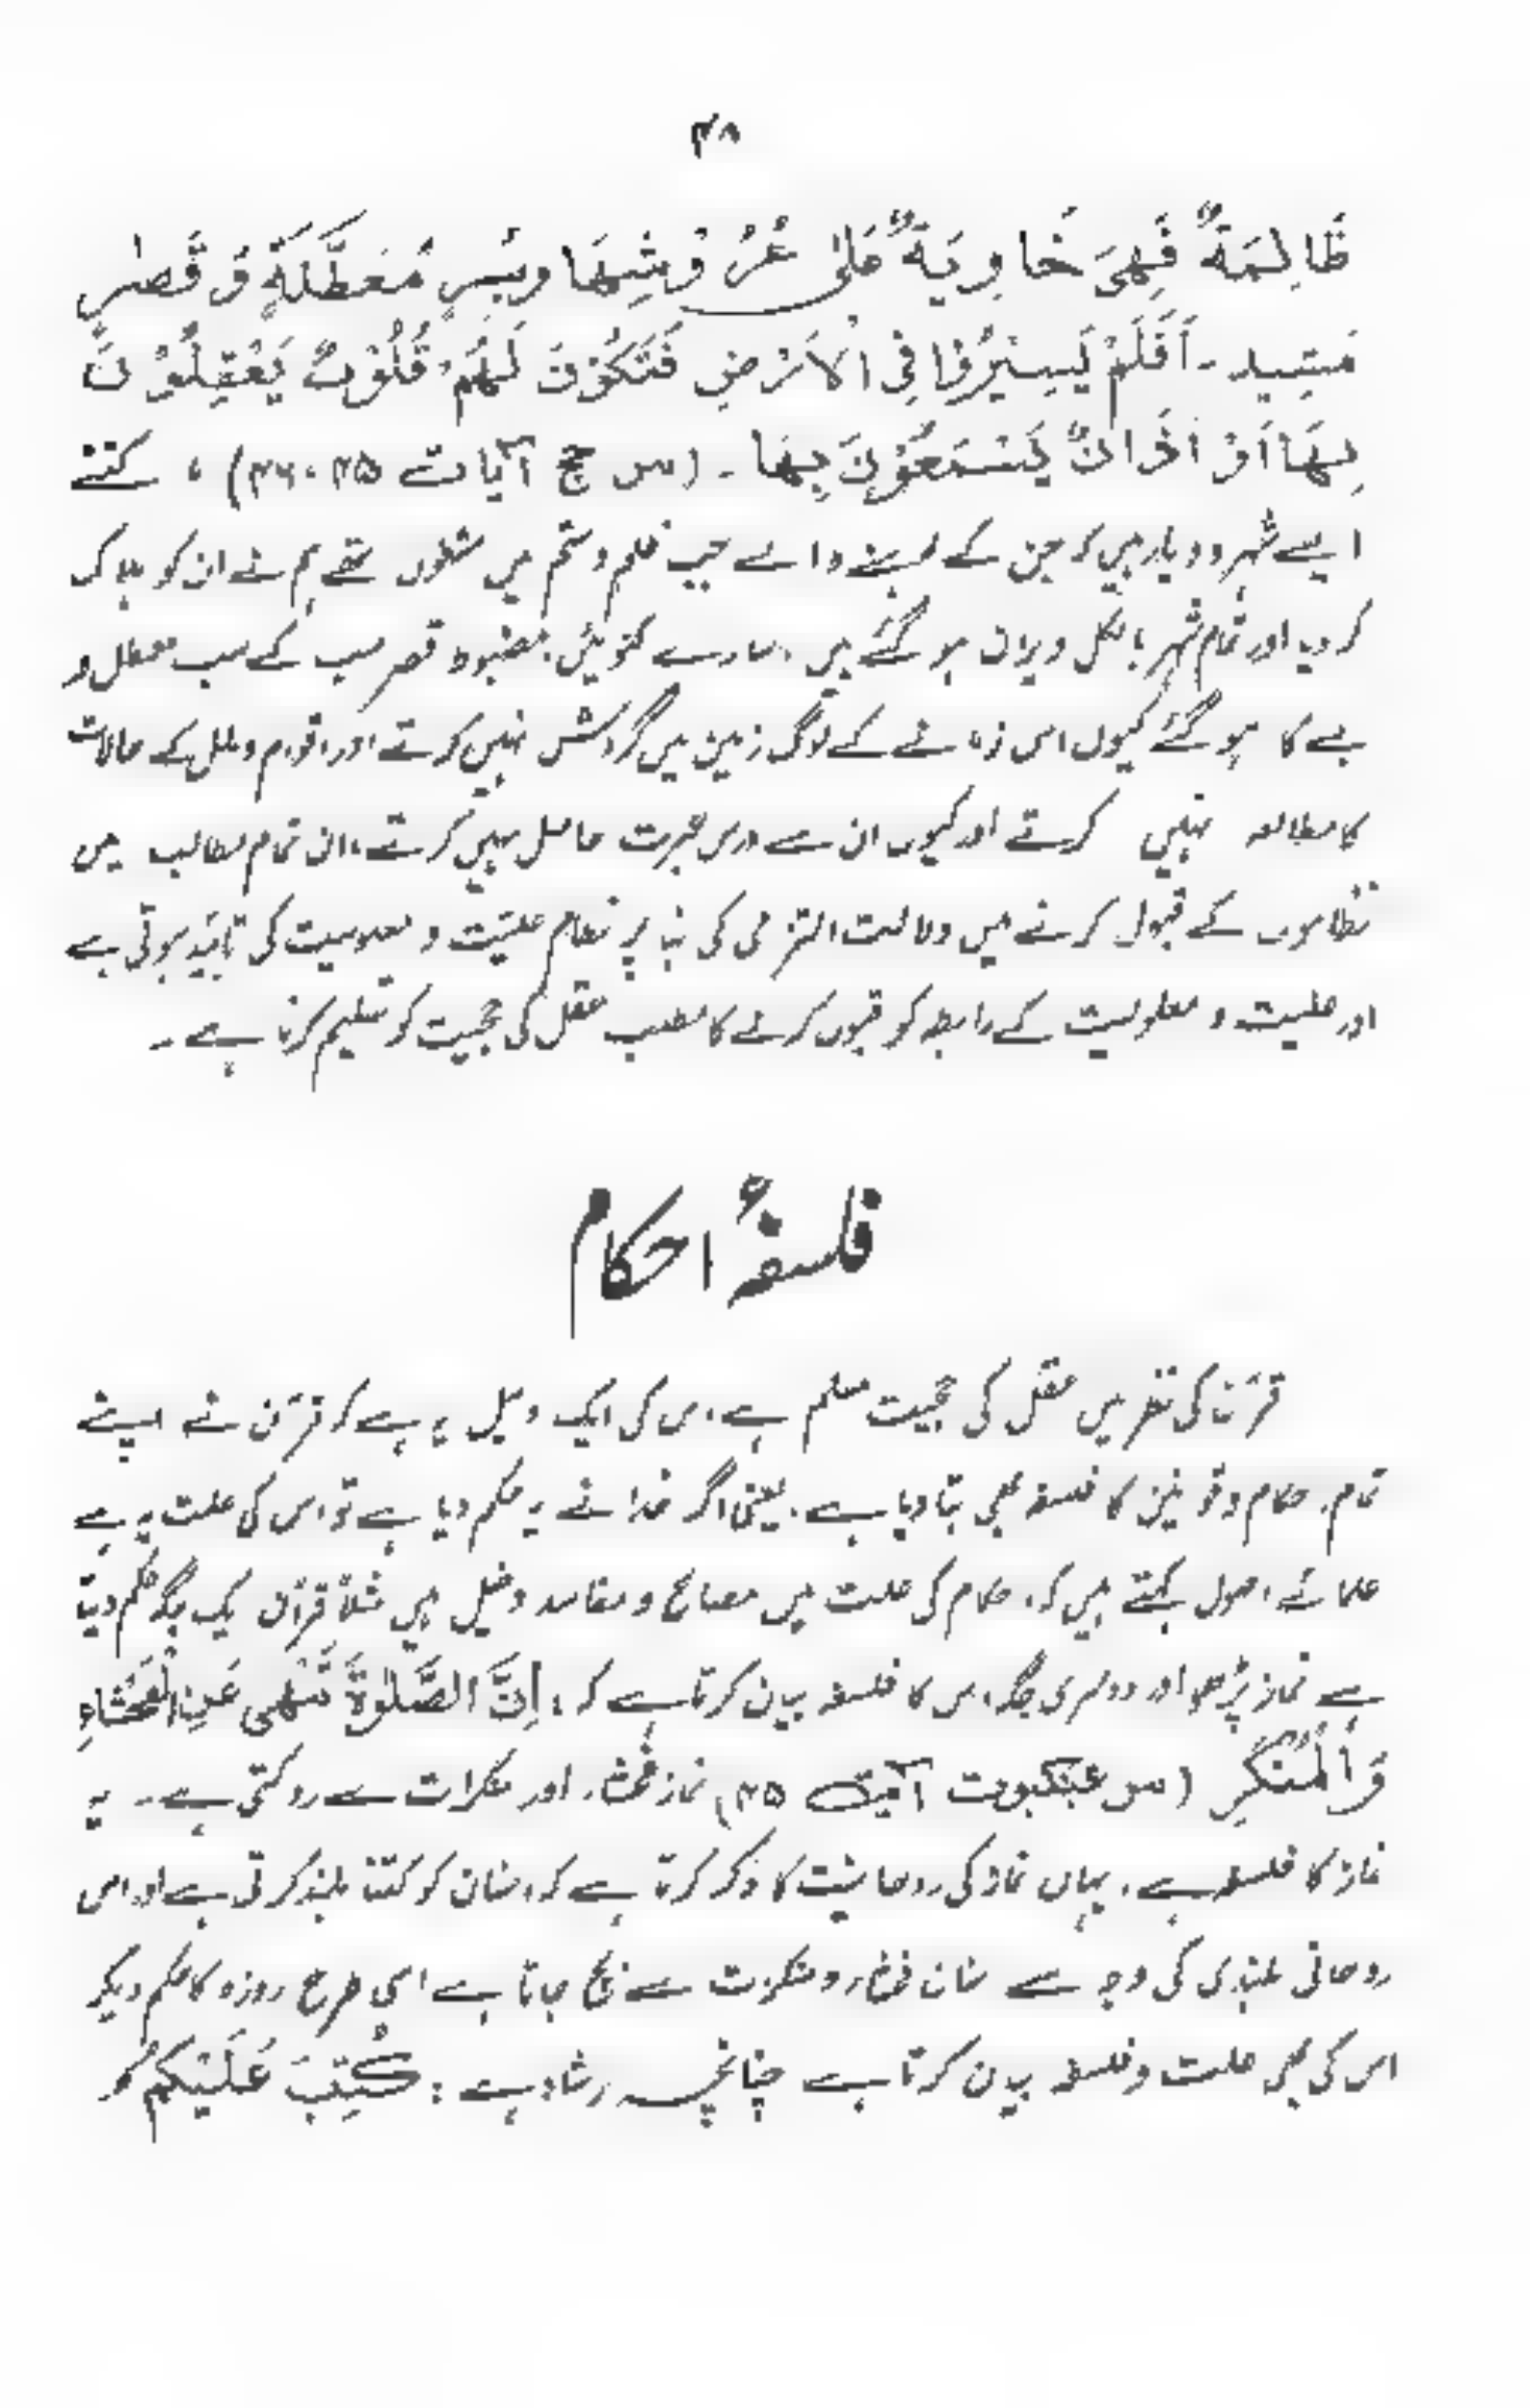 ۴۸
ظَالِمَةٌ فَهِیَ خَاوِیَةٌ عَلیٰ عُرُوْشِهَا وبِئْرٍ مُعَطَّلَةٍ وَ قَصْرٍ
مَشِیْد۔ اَفَلَمْ یَسِیْرُوْا فِی الْاَرْضِ فَتَکُوْنَ لَهُمْ قُلُوْبٌ یَعْقِلُوْنَ
بِهَا اَوْ اٰذَانٌ یَسْمَعُوْنَ بِهَا۔ (س حج آیات ۴۵، ۴۶) ، کتنے
ایسے شہر و دیار ہیں کہ جن کے بسنے والے جب ظلم و ستم میں مشغول تھے ہم نے ان کو ہلاک
کر دیا اور تمام شہر بالکل ویران ہو گئے ہیں، سارے کنویں، مضبوط قصر سب کے سب معطل و
بے کا ہو گئے کیوں اس زمانے کے لوگ زمین میں گردش نہیں کرتے اور اقوام و ملل کے حالات
کا مطالعہ نہیں کرتے اور کیوں ان سے درس عبرت حاصل نہیں کرتے، ان تمام مطالب میں
نظاموں کے قبول کرنے میں دلالت التزامی کی بنا پر نظام علیّت و معلولیت کی تائید ہوتی ہے
اور علیت و معلولیت کے رابطہ کو قبول کرنے کا مطلب عقل کی حجیت کو تسلیم کرنا ہے۔
فلسفۂ احکام
قرآن کی نظر میں عقل کی حجیت مسلم ہے، اس کی ایک دلیل یہ ہے کہ قرآن نے اپنے
تمام احکام و قوانین کا فلسفہ بھی بتا دیا ہے، یعنی اگر خدا نے یہ حکم دیا ہے تو اس کی علت یہ ہے
علمائے اصول کہتے ہیں کہ احکام کی علت میں مصالح و مفاسد دخیل ہیں مثلاً قرآن ایک جگہ حکم دیتا
ہے نماز پڑھو اور دوسری جگہ اس کا فلسفہ بیان کرتا ہے کہ: اِنَّ الصَّلوٰةَ تَنْهٰی عَنِ الْفَحْشَاءِ
وَالْمُنْکَرِ (س عنکبوت آیت ۴۵) نماز فحشاء اور منکرات سے روکتی ہے۔ یہ
نماز کا فلسفہ ہے، یہاں نماز کی روحانیت کا ذکر کرتا ہے کہ انسان کو کتنا بلند کرتی ہے اور اس
روحانی بلندی کی وجہ سے انسان فحشاء و منکرات سے بچ جاتا ہے اسی طرح روزہ کا حکم دیکر
اس کی بھی علت و فلسفہ بیان کرتا ہے چنانچہ ارشاد ہے: کُتِبَ عَلَیْکُمُ